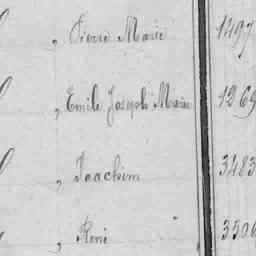 , Pierre Marie 1497
, Emile Joseph Marie 1269
, Joachim 3483
, René 3506